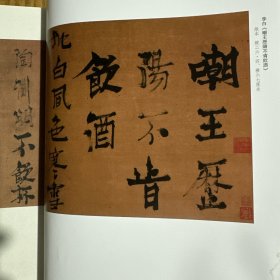 李白《嘲王歷陽不肯飲酒》
嘲王歷
陽不肯
飲酒
地白風色寒雪
陶淵明不飲杯